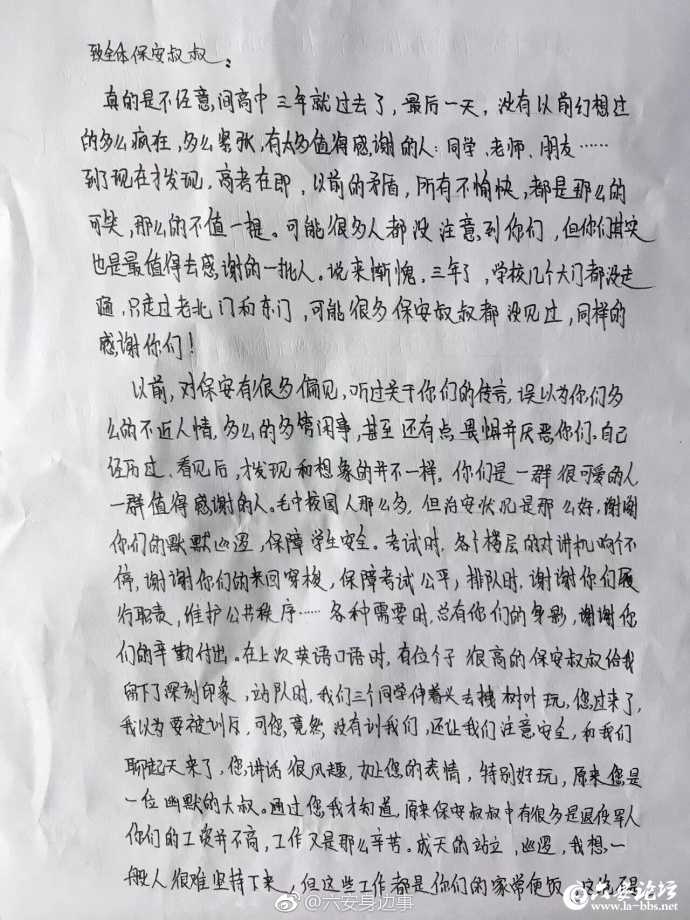 致全体保安叔叔：
真的是不经意间高中三年就过去了，最后一天，没有以前幻想过
的多么疯狂，多么紧张，有太多值得感谢的人：同学、老师、朋友……
到了现在才发现，高考在即，以前的矛盾，所有不愉快，都是那么的
可笑，那么的不值一提。可能很多人都没注意到你们，但你们其实
也是最值得去感谢的一批人。说来惭愧，三年了，学校几个大门都没走
通，只走过老北门和东门，可能很多保安叔叔都没见过，同样的
感谢你们！
以前，对保安有很多偏见，听过关于你们的传言，误以为你们多
么的不近人情，多么的多管闲事，甚至还有点畏惧并厌恶你们。自己
经历过、看见后，才发现和想象的并不一样，你们是一群很可爱的人
一群值得感谢的人。毛中校园人那么多，但治安状况是那么好，谢谢
你们的默默巡逻，保障学生安全。考试时，各个楼层的对讲机响个不
停，谢谢你们的来回穿梭，保障考试公平；排队时，谢谢你们履
行职责，维护公共秩序……各种需要时，总有你们的身影，谢谢你
们的辛勤付出。在上次英语口语时，有位个子很高的保安叔叔给我
留下了深刻印象，站队时，我们三个同学伸着头去拽树叶玩，您过来了，
我以为要被训斥，可您竟然没有训我们，还让我们注意安全，和我们
聊起天来了，您讲话很风趣，加上您的表情，特别好玩，原来您是
一位幽默的大叔。通过您我才知道，原来保安叔叔中有很多是退役军人
你们的工资并不高，工作又是那么辛苦。成天的站立，巡逻，我想，一
般人很难坚持下来，但这些工作都是你们的家常便饭，
@六安身边事
六安论坛
www.la-bbs.net